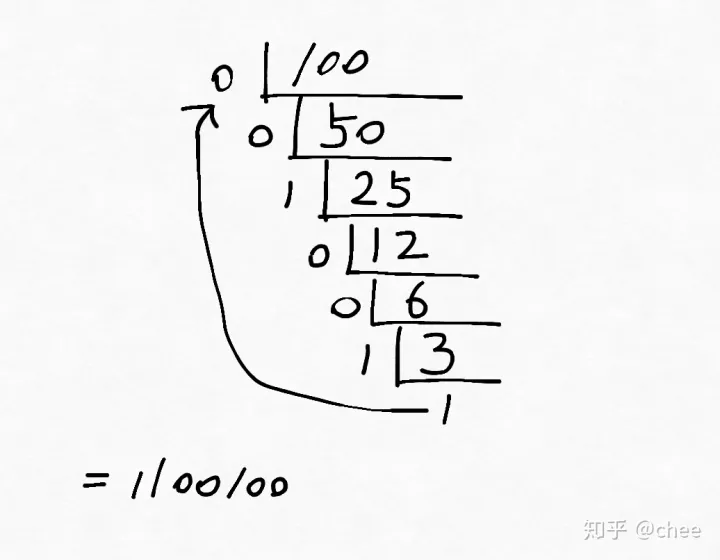 0 100
0 50
1 25
0 12
0 6
1 3
1
= 1100100
知乎 @chee